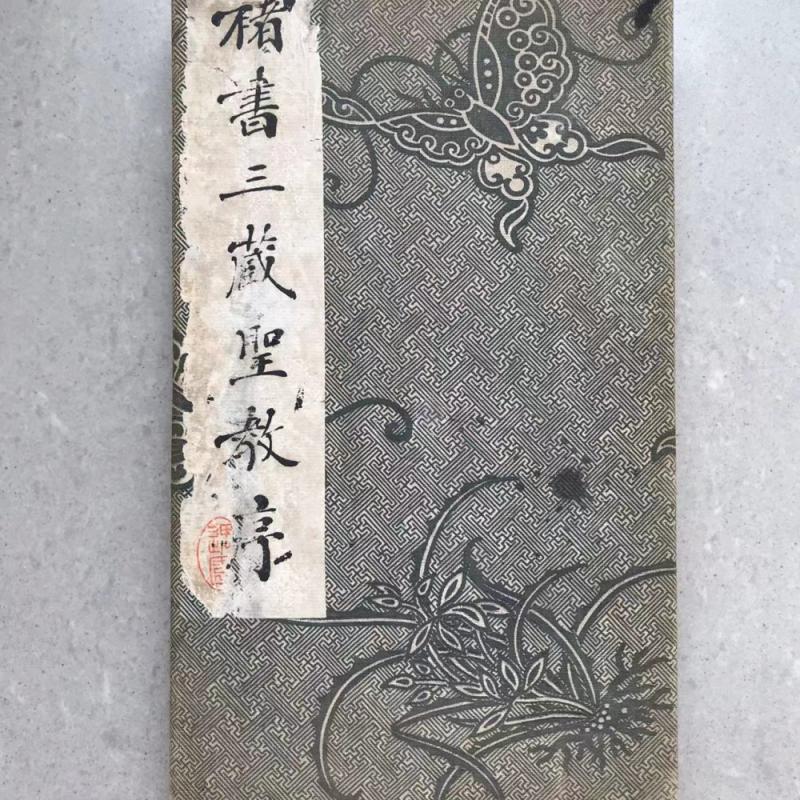 褚書三蔵聖教序